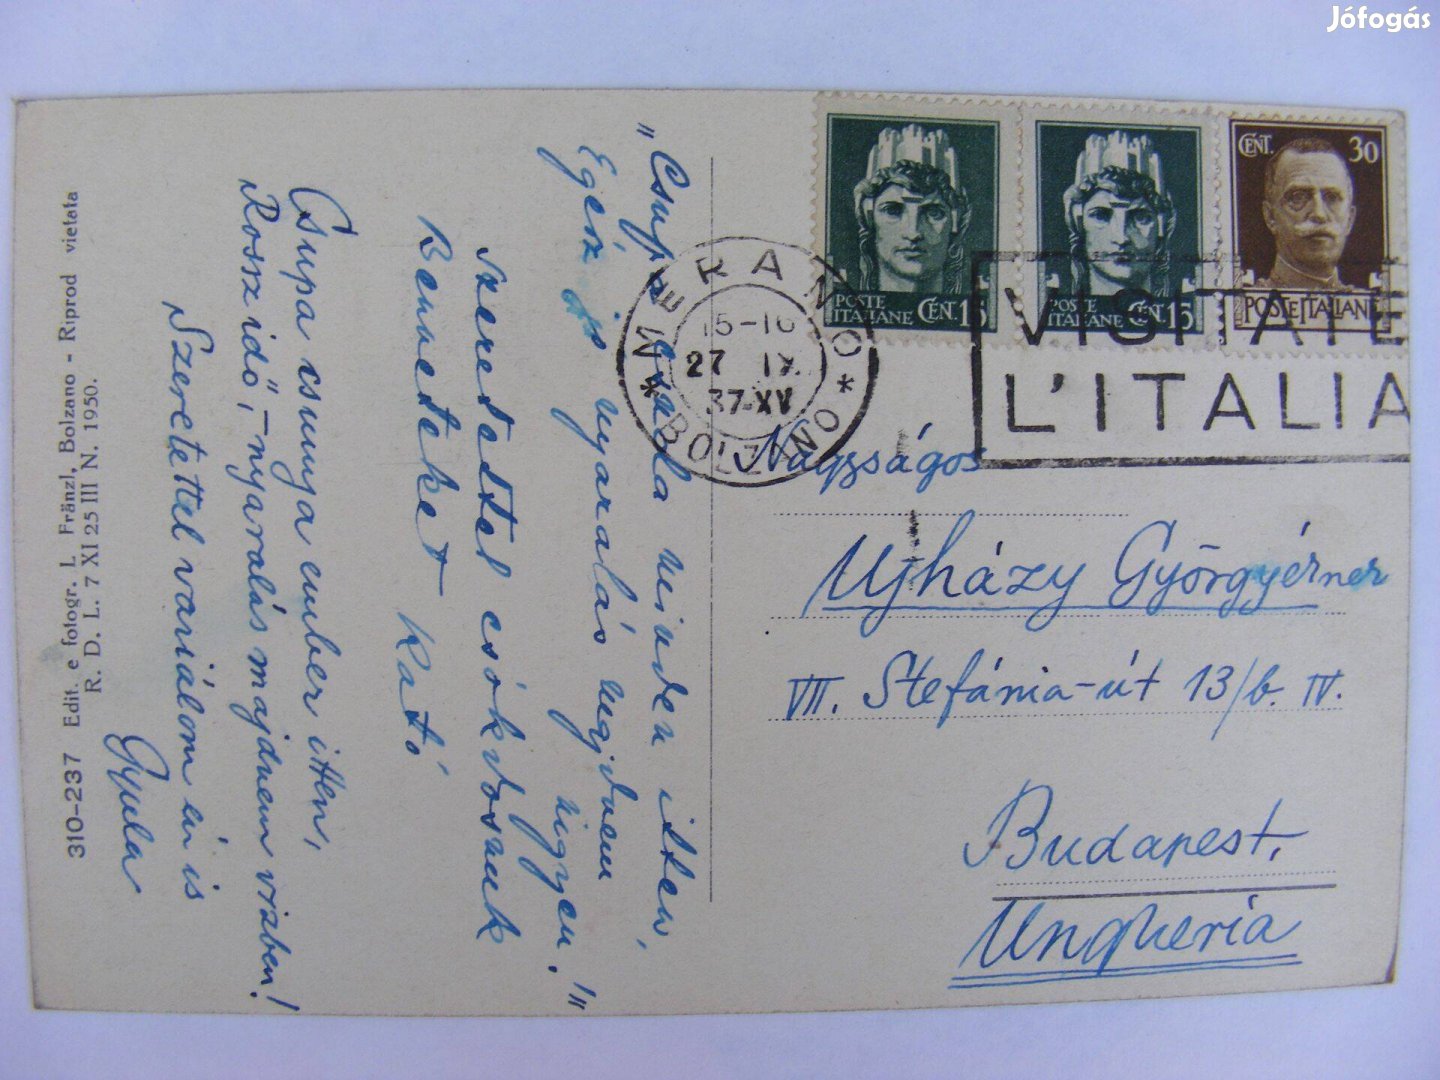 Jófogás
"Csupa csalá minden itten,
Egész is nyaralás majdnem ingyen!"
Szeretettel csókdosunk
Benneteket Kató
Csupa csunya ember itten,
Rossz idő, - nyaralás majdnem vizben!
Szeretettel variálom én is
Gyula
310-237 Edit. e fotogr. L. Fränzl, Bolzano - Riprod vietata
R. D. L. 7 XI 25 III N. 1950.
MERANO
15-16
27 IX.
37-XV
* BOLZANO *
POSTE ITALIANE CENT. 15
POSTE ITALIANE CENT. 15
CENT. 30
POSTE ITALIANE
VISITATE
L'ITALIA
Nagyságos
Ujházy Györgyérner
VII. Stefánia-út 13/b. IV.
Budapest.
Ungheria